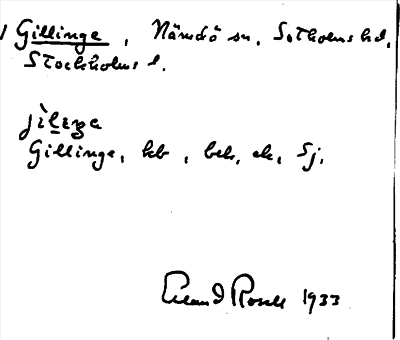 Gillinge, Nämdö sn, Sotholms hd,
Stockholms l.
jìlıŋe
Gillinge, kb, beb, ek, Sj,
Erland Rosell 1933